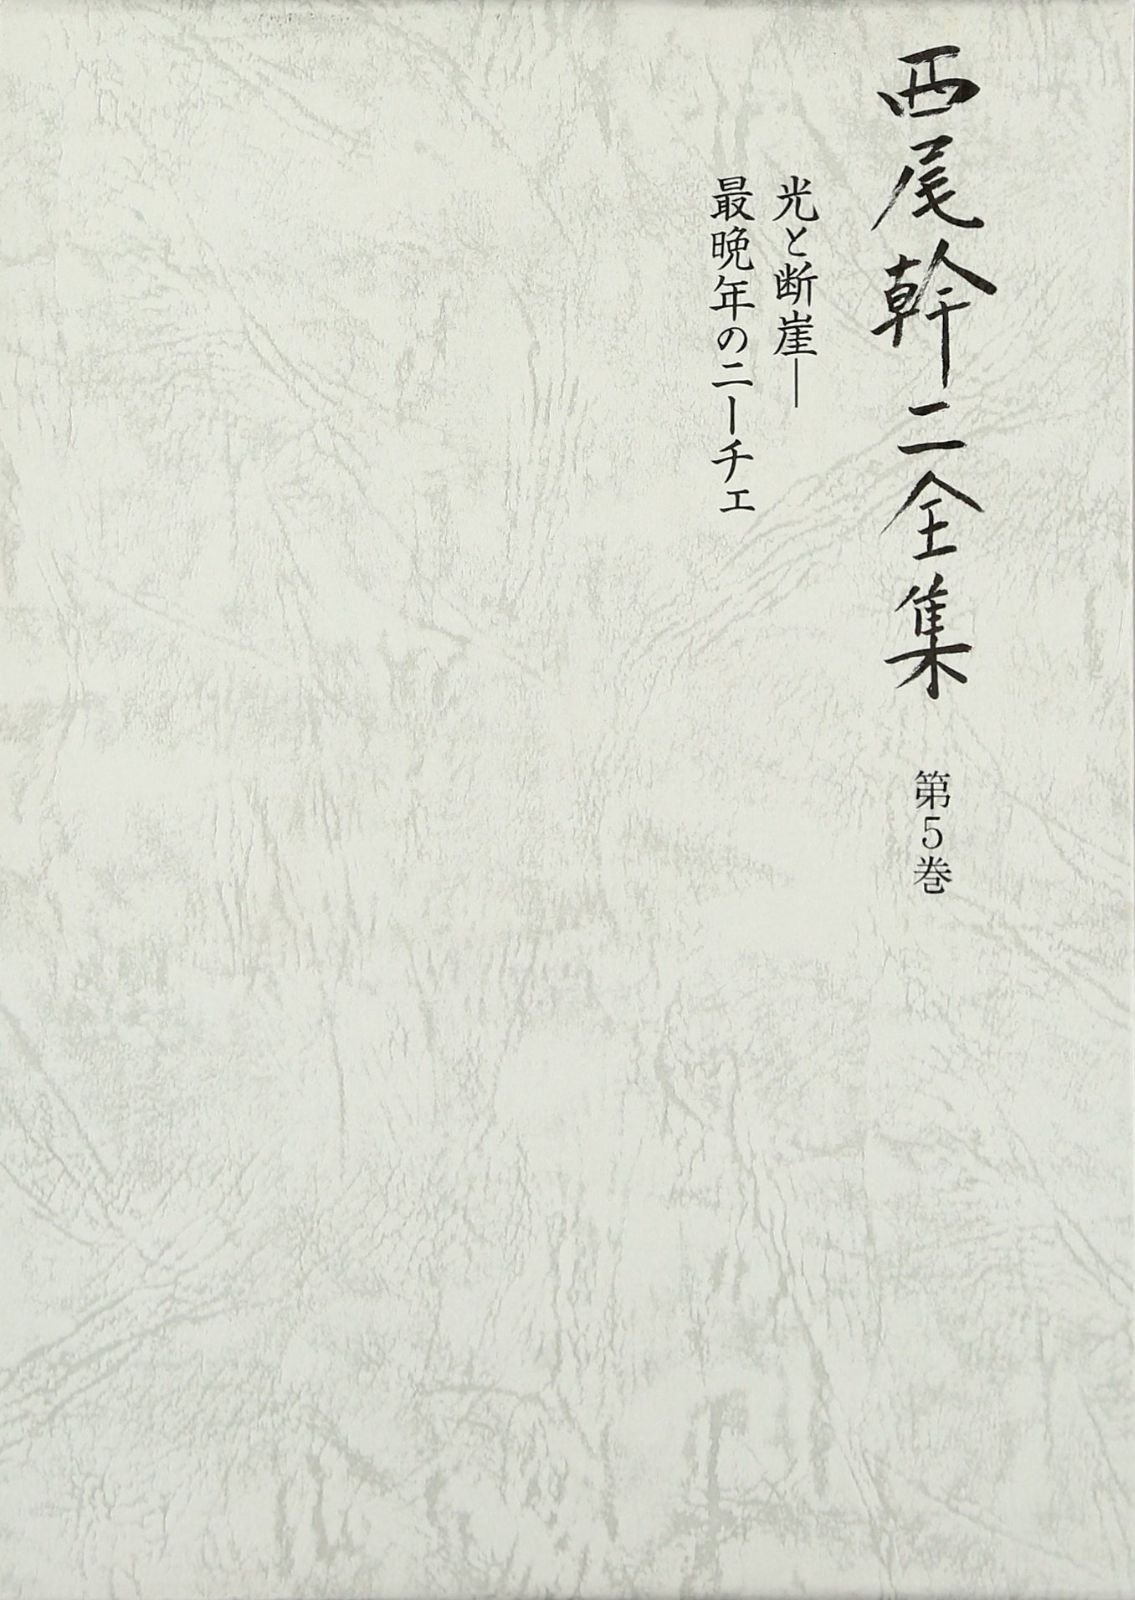 西尾幹二全集 第5巻
光と断崖―
最晩年のニーチェ